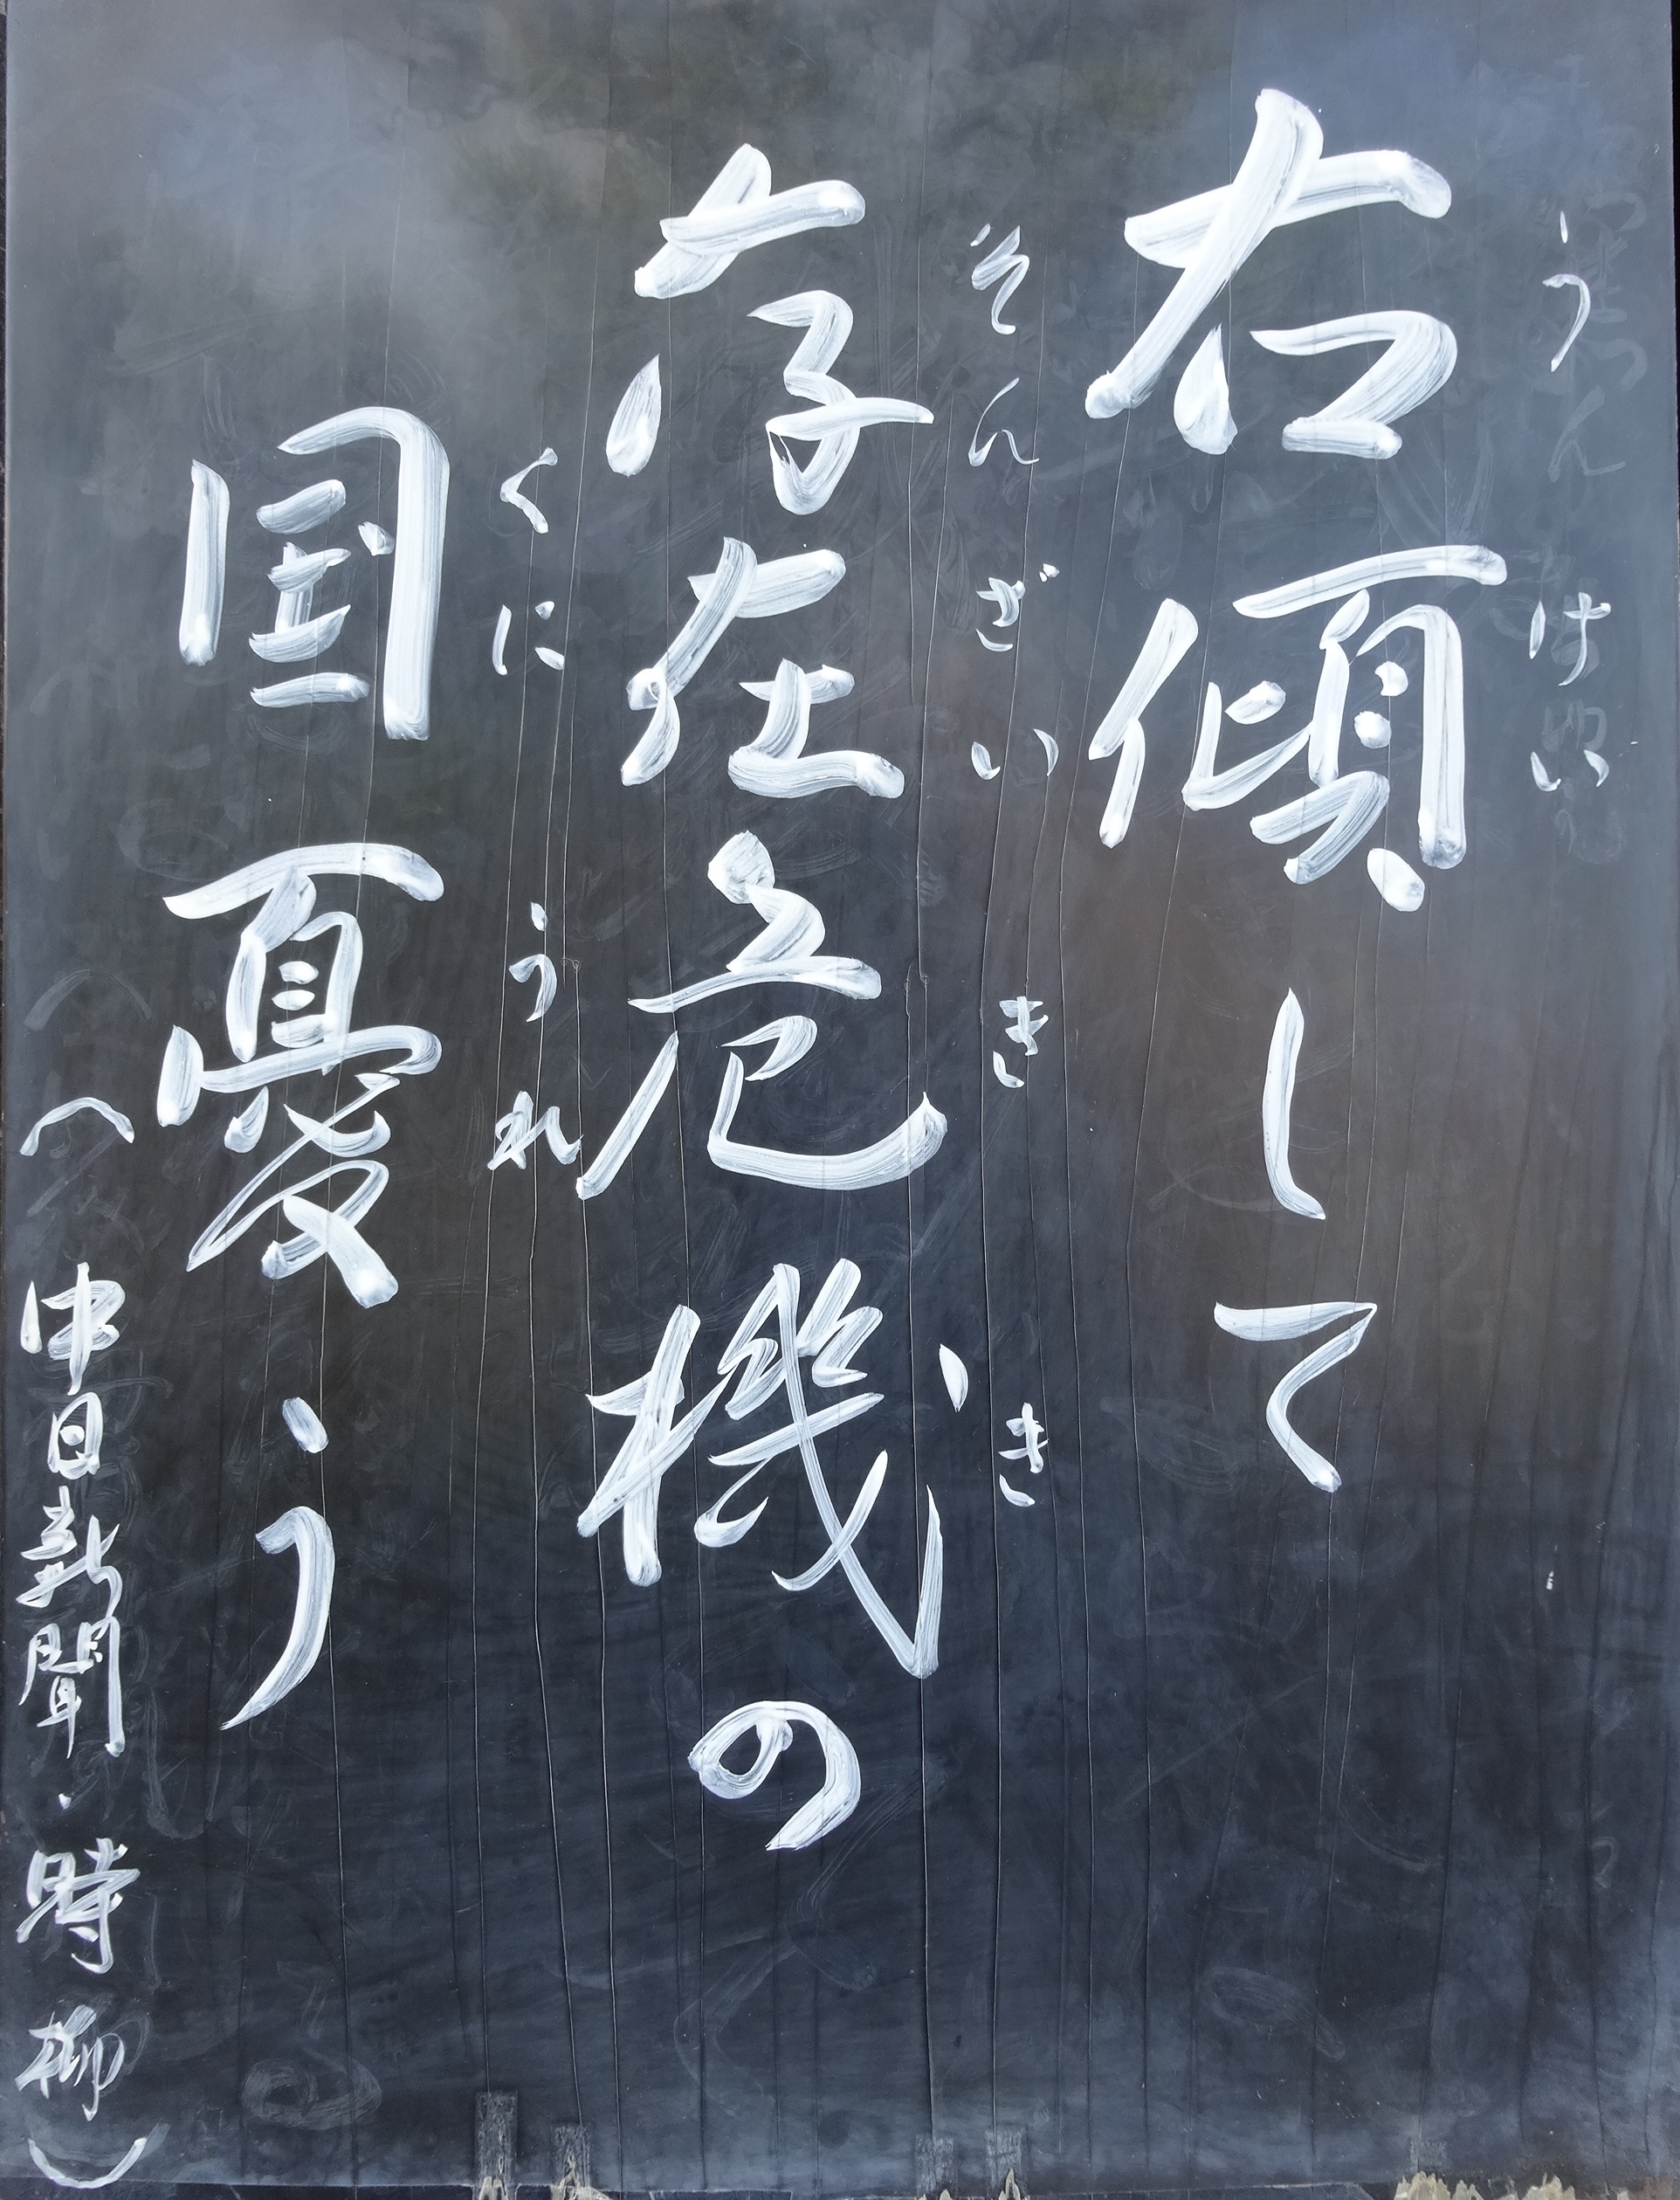 うけい
右傾して
そんざい きき
存在危機の
くに うれ
国憂う
（中日新聞・時柳）